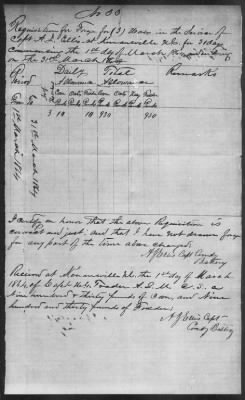 No 30
Requisition for Forage for (3) Mules in the Service of
Capt A. J. Ellis at Kenansville N.C. for 31 days
commencing the 1st day of March
on the 31st March 1864
Daily Total Remarks
Period Allowance Allowance
From To
Corn Oats Fodder Corn Oats Hay Fodder
3 10 10 930 930
1st March 1864
31st March 1864
I certify on honor that the above Requisition is
correct and just, and that I have not drawn forage
for any part of the time above charged.
A J Ellis Capt Comdg
Battery
Received at Kenansville N.C. the 1st day of March
1864, of Capt
Nine hundred & thirty pounds of Corn, and Nine
hundred and thirty pounds of Fodder.
A J Ellis Capt
Comdg Battery